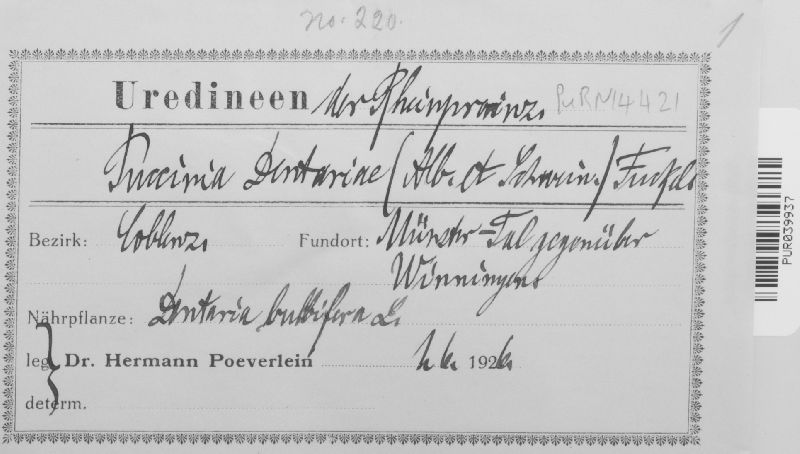 no. 220.
1
Uredineen der Rheinprovinz. PURN14421
Puccinia Dentariae (Alb. et Schwein.) Fuckel
Bezirk: Coblenz. Fundort: Münster-Tal gegenüber
Winningen.
Nährpflanze: Dentaria bulbifera L.
leg. Dr. Hermann Poeverlein 1926.
determ.
PUR039937